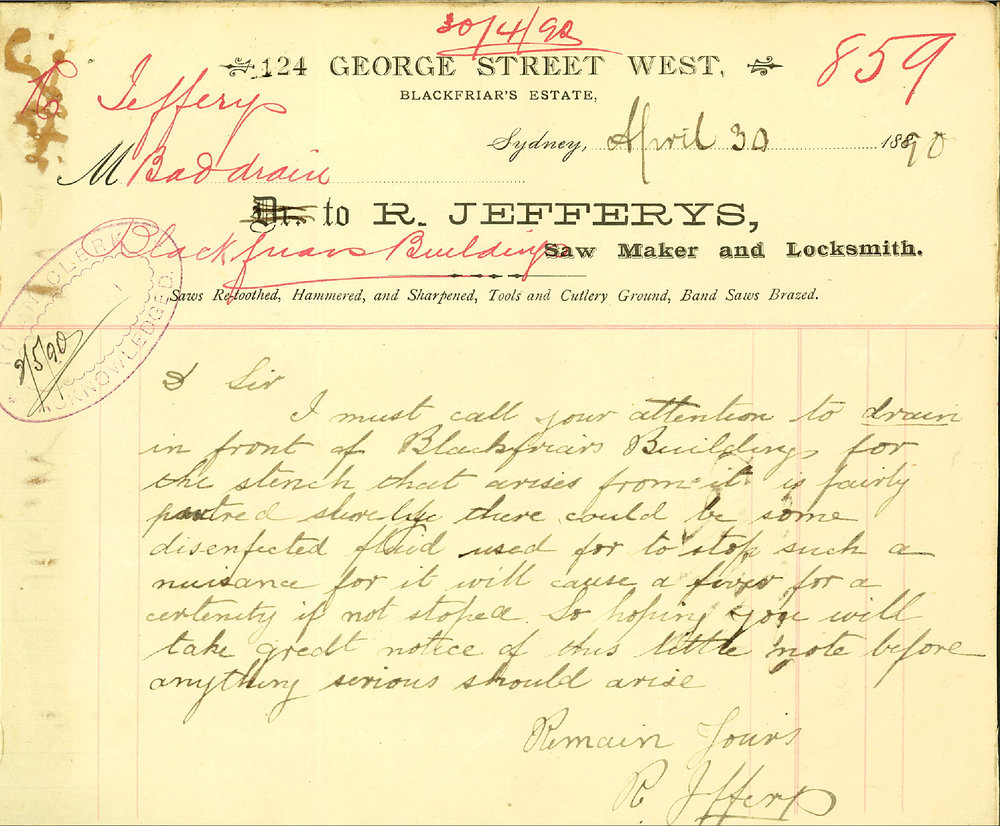 30/4/90
124 GEORGE STREET WEST,
859
R Jefferys
BLACKFRIAR'S ESTATE,
Sydney, April 30 1890
M Bad drain
Dr. to R. JEFFERYS,
Blackfriars Buildings
Saw Maker and Locksmith.
Saws Re-toothed, Hammered, and Sharpened, Tools and Cutlery Ground, Band Saws Brazed.
TOWN CLERK
2/5/90
ACKNOWLEDGED
D Sir
I must call your attention to drain
in front of Blackfriars Buildings for
the stench that arises from it is fairly
putred shorely there could be some
disenfected fluid used for to stop such a
nuisance for it will cause a fever for a
certenity if not stoped. So hoping you will
take great notice of this little note before
anything serious should arise
Remain Yours
R Jefferys